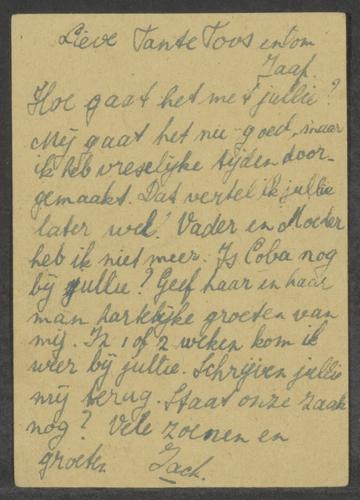 Lieve Tante Toos en Oom
Jaap.
Hoe gaat het met jullie?
Mij gaat het nu goed, maar
ik heb vreselijke tijden door-
gemaakt. Dat vertel ik jullie
later wel. Vader en Moeder
heb ik niet meer. Is Coba nog
bij jullie? Geef haar en haar
man hartelijke groeten van
mij. In 1 of 2 weken kom ik
weer bij jullie. Schrijven jullie
mij terug. Staat onze zaak
nog? Vele zoenen en
groeten Jack.